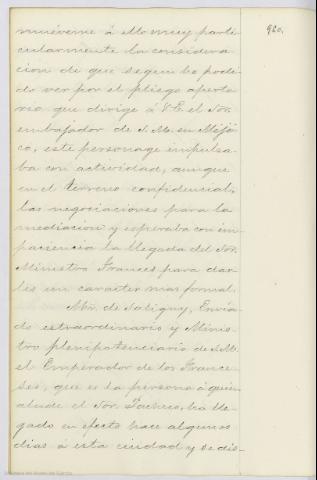 960.
muéveme á ello muy parti-
cularmente la considera-
cion de que segun he podi-
do ver por el pliego aperto-
rio que dirige á V.E. el Sor.
embajador de S.M. en Méji-
co, este personage impulsa-
ba con actividad, aunque
en el terreno confidencial,
las negociaciones para la
mediacion y esperaba con im-
paciencia la llegada del Sor.
Ministro Frances para dar-
les un caracter mas formal.
Mr. de Saligny, Envia-
do extraordinario y Minis-
tro plenipotenciario de S.M.
el Emperador de los France-
ses, que es la persona á quien
alude el Sor. Pacheco, ha lle-
gado en efecto hace algunos
dias á esta ciudad y se dis-